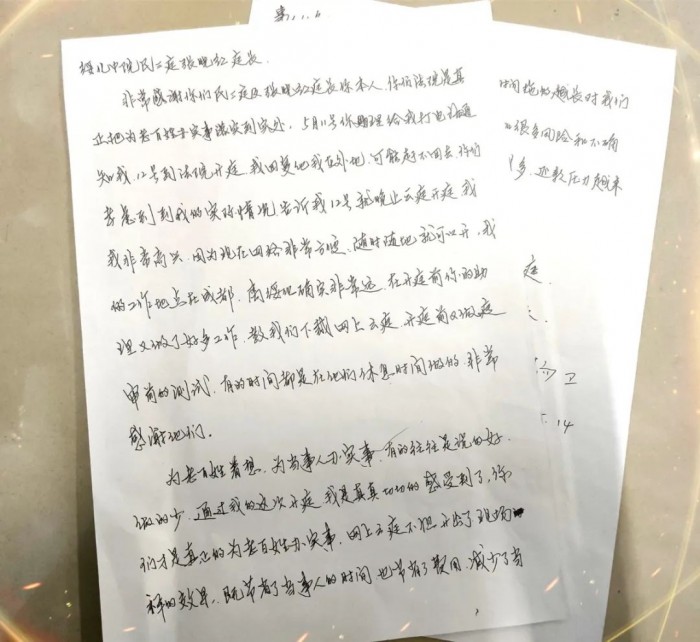 中院民二庭张晓红庭长
非常感谢你们民二庭及张晓红庭长你本人,你们法院是真
正把为老百姓办实事落实到实处,5月11号你助理给我打电话通
知我,12号到法院开庭,我回复他我在外地,可能赶不回去,你们
考虑到到我的实际情况,告诉我12号就晚上云庭开庭,我
我非常高兴,因为现在网络非常方便,随时随地就可以开,我
的工作地点在成都,离确实非常远,在开庭前你的助
理又做了好多工作,教我们下载网上云庭,开庭前又做庭
审前的测试,有的时间都是在他们休息时间做的,非常
感谢他们。
为老百姓着想,为当事人办实事,有的往往是说的好,
做的少,通过我的这次开庭,我是真真切切的感受到了,你
们才是真正的为老百姓办实事,网上云庭不但开出了现场
的效果,既节省了当事人的时间,也节省了费用,减少了当
间拖的越长对我们
很多风险和不确
多,还款压力越来
庭
卫
14